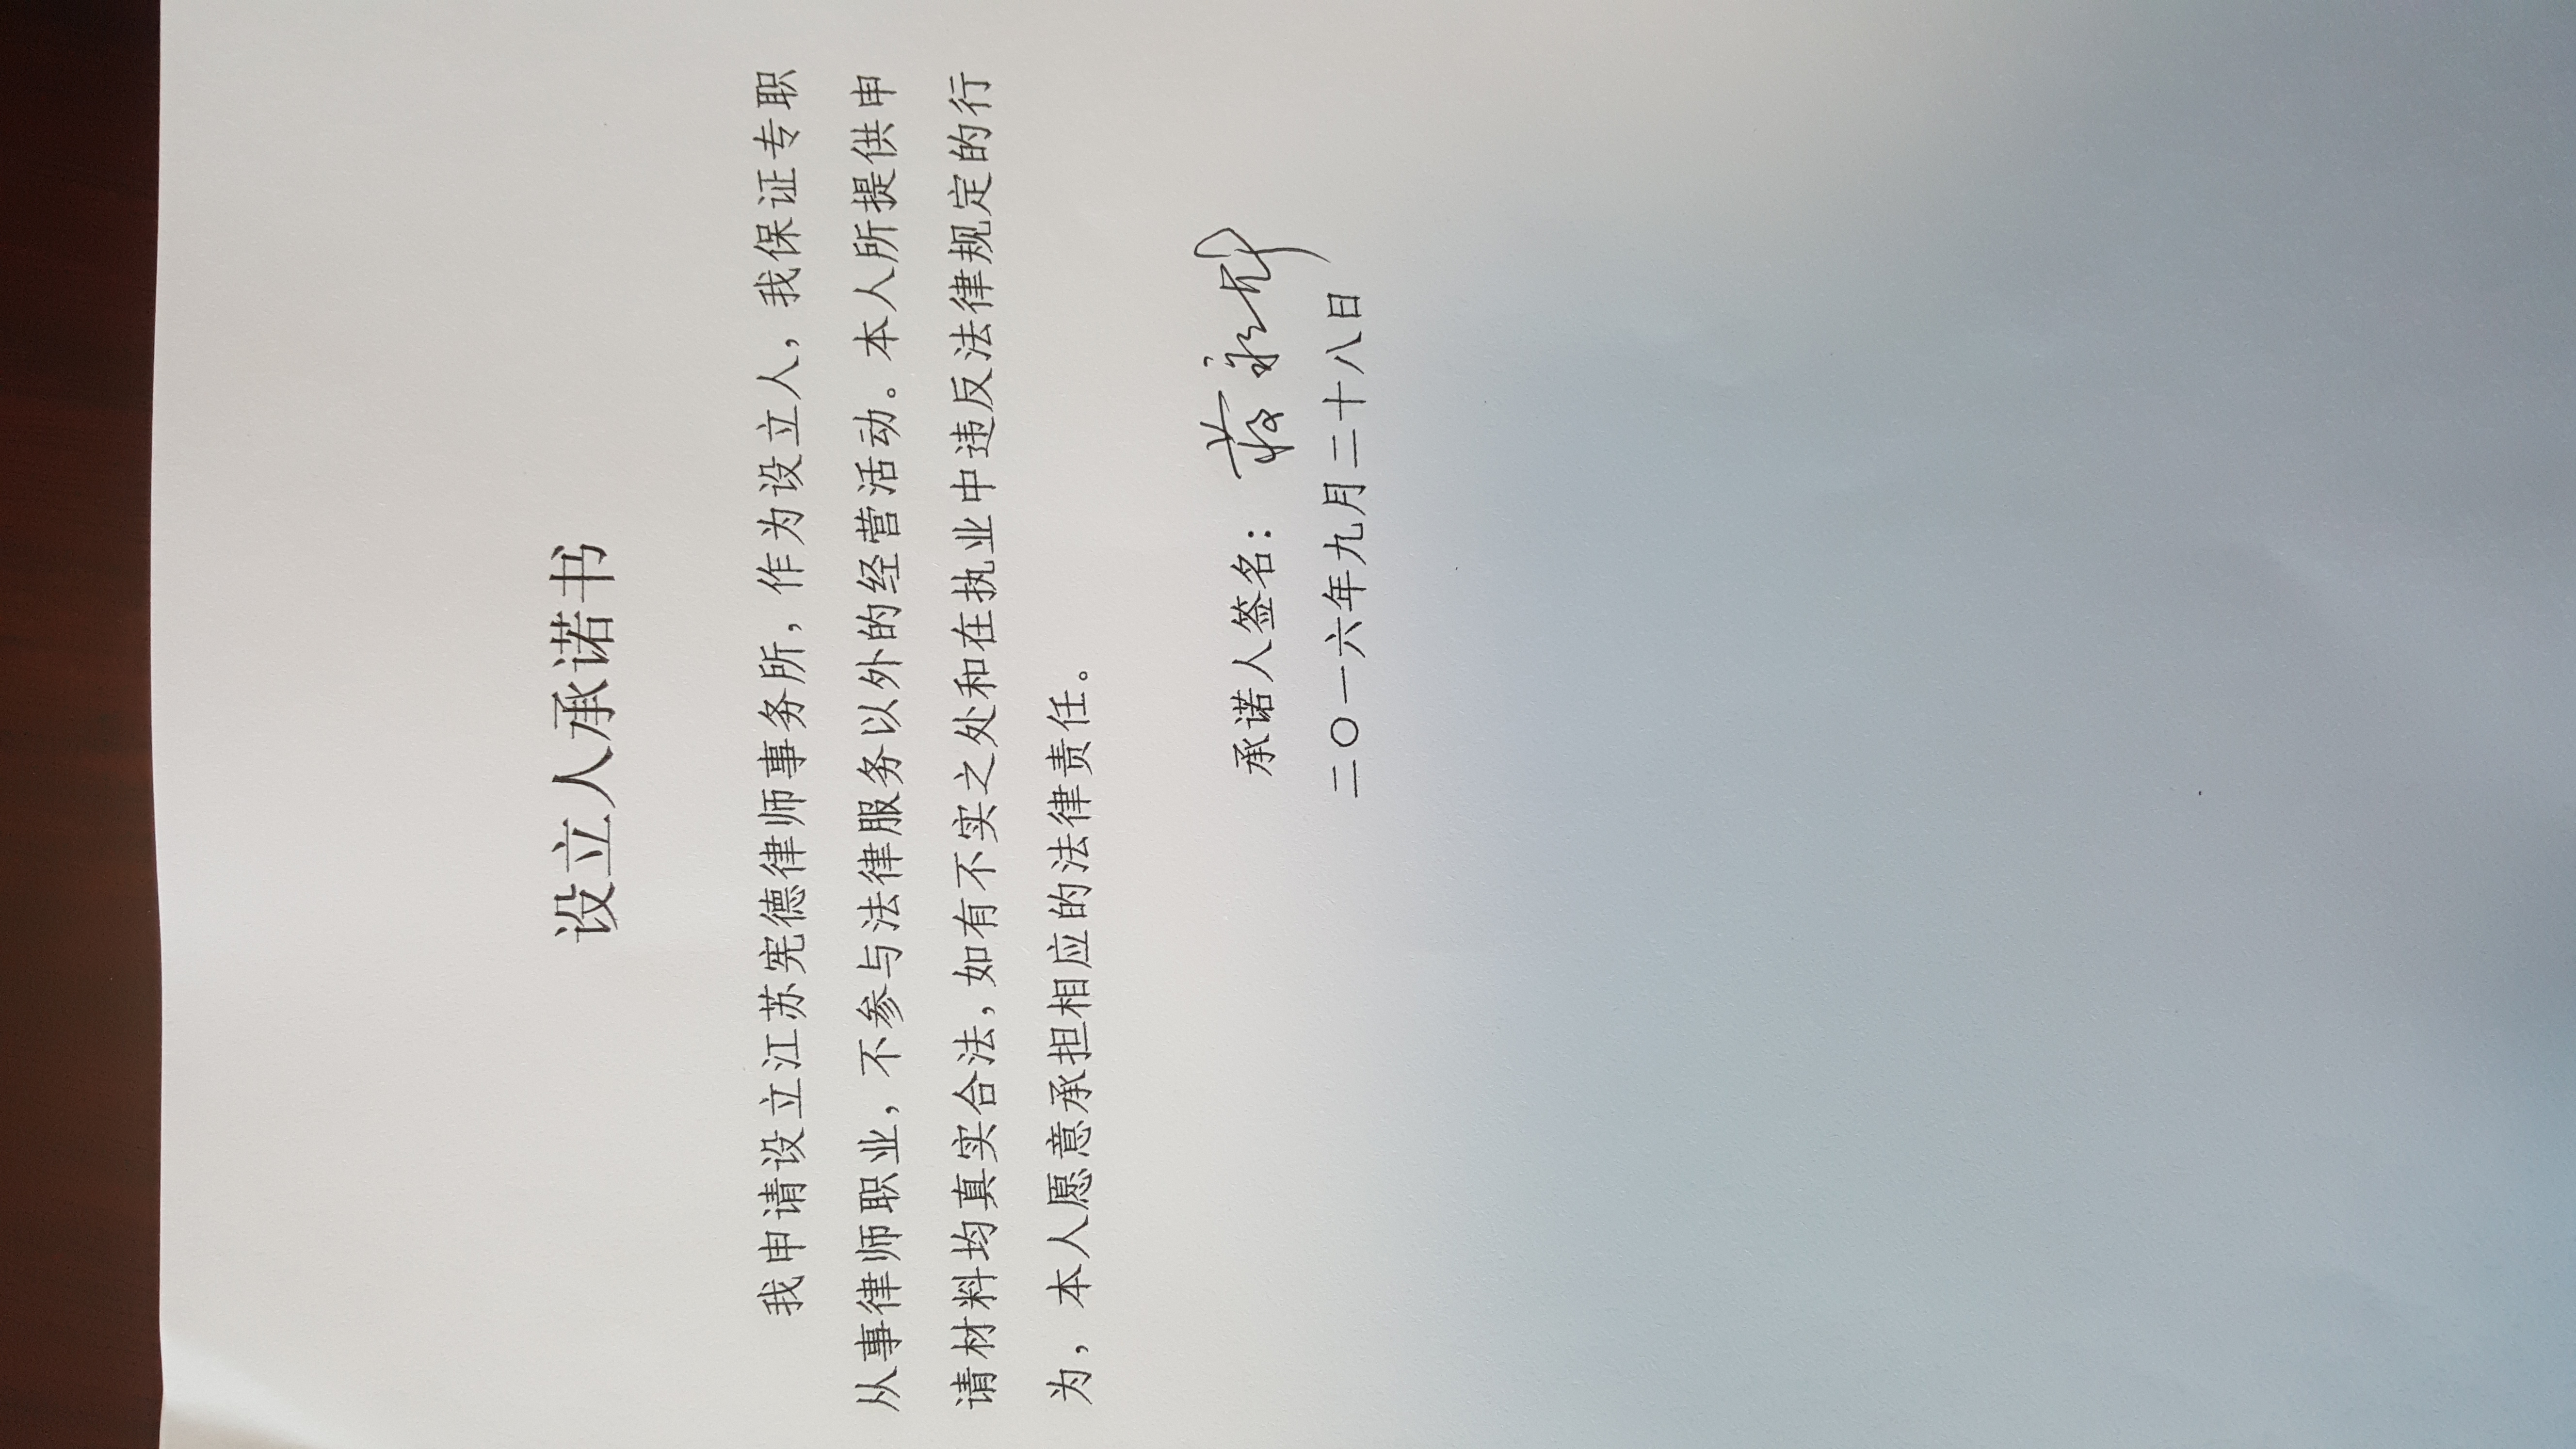 设立人承诺书
我申请设立江苏宪德律师事务所，作为设立人，我保证专职
从事律师职业，不参与法律服务以外的经营活动。本人所提供申
请材料均真实合法，如有不实之处和在执业中违反法律规定的行
为，本人愿意承担相应的法律责任。
承诺人签名：
二〇一六年九月二十八日